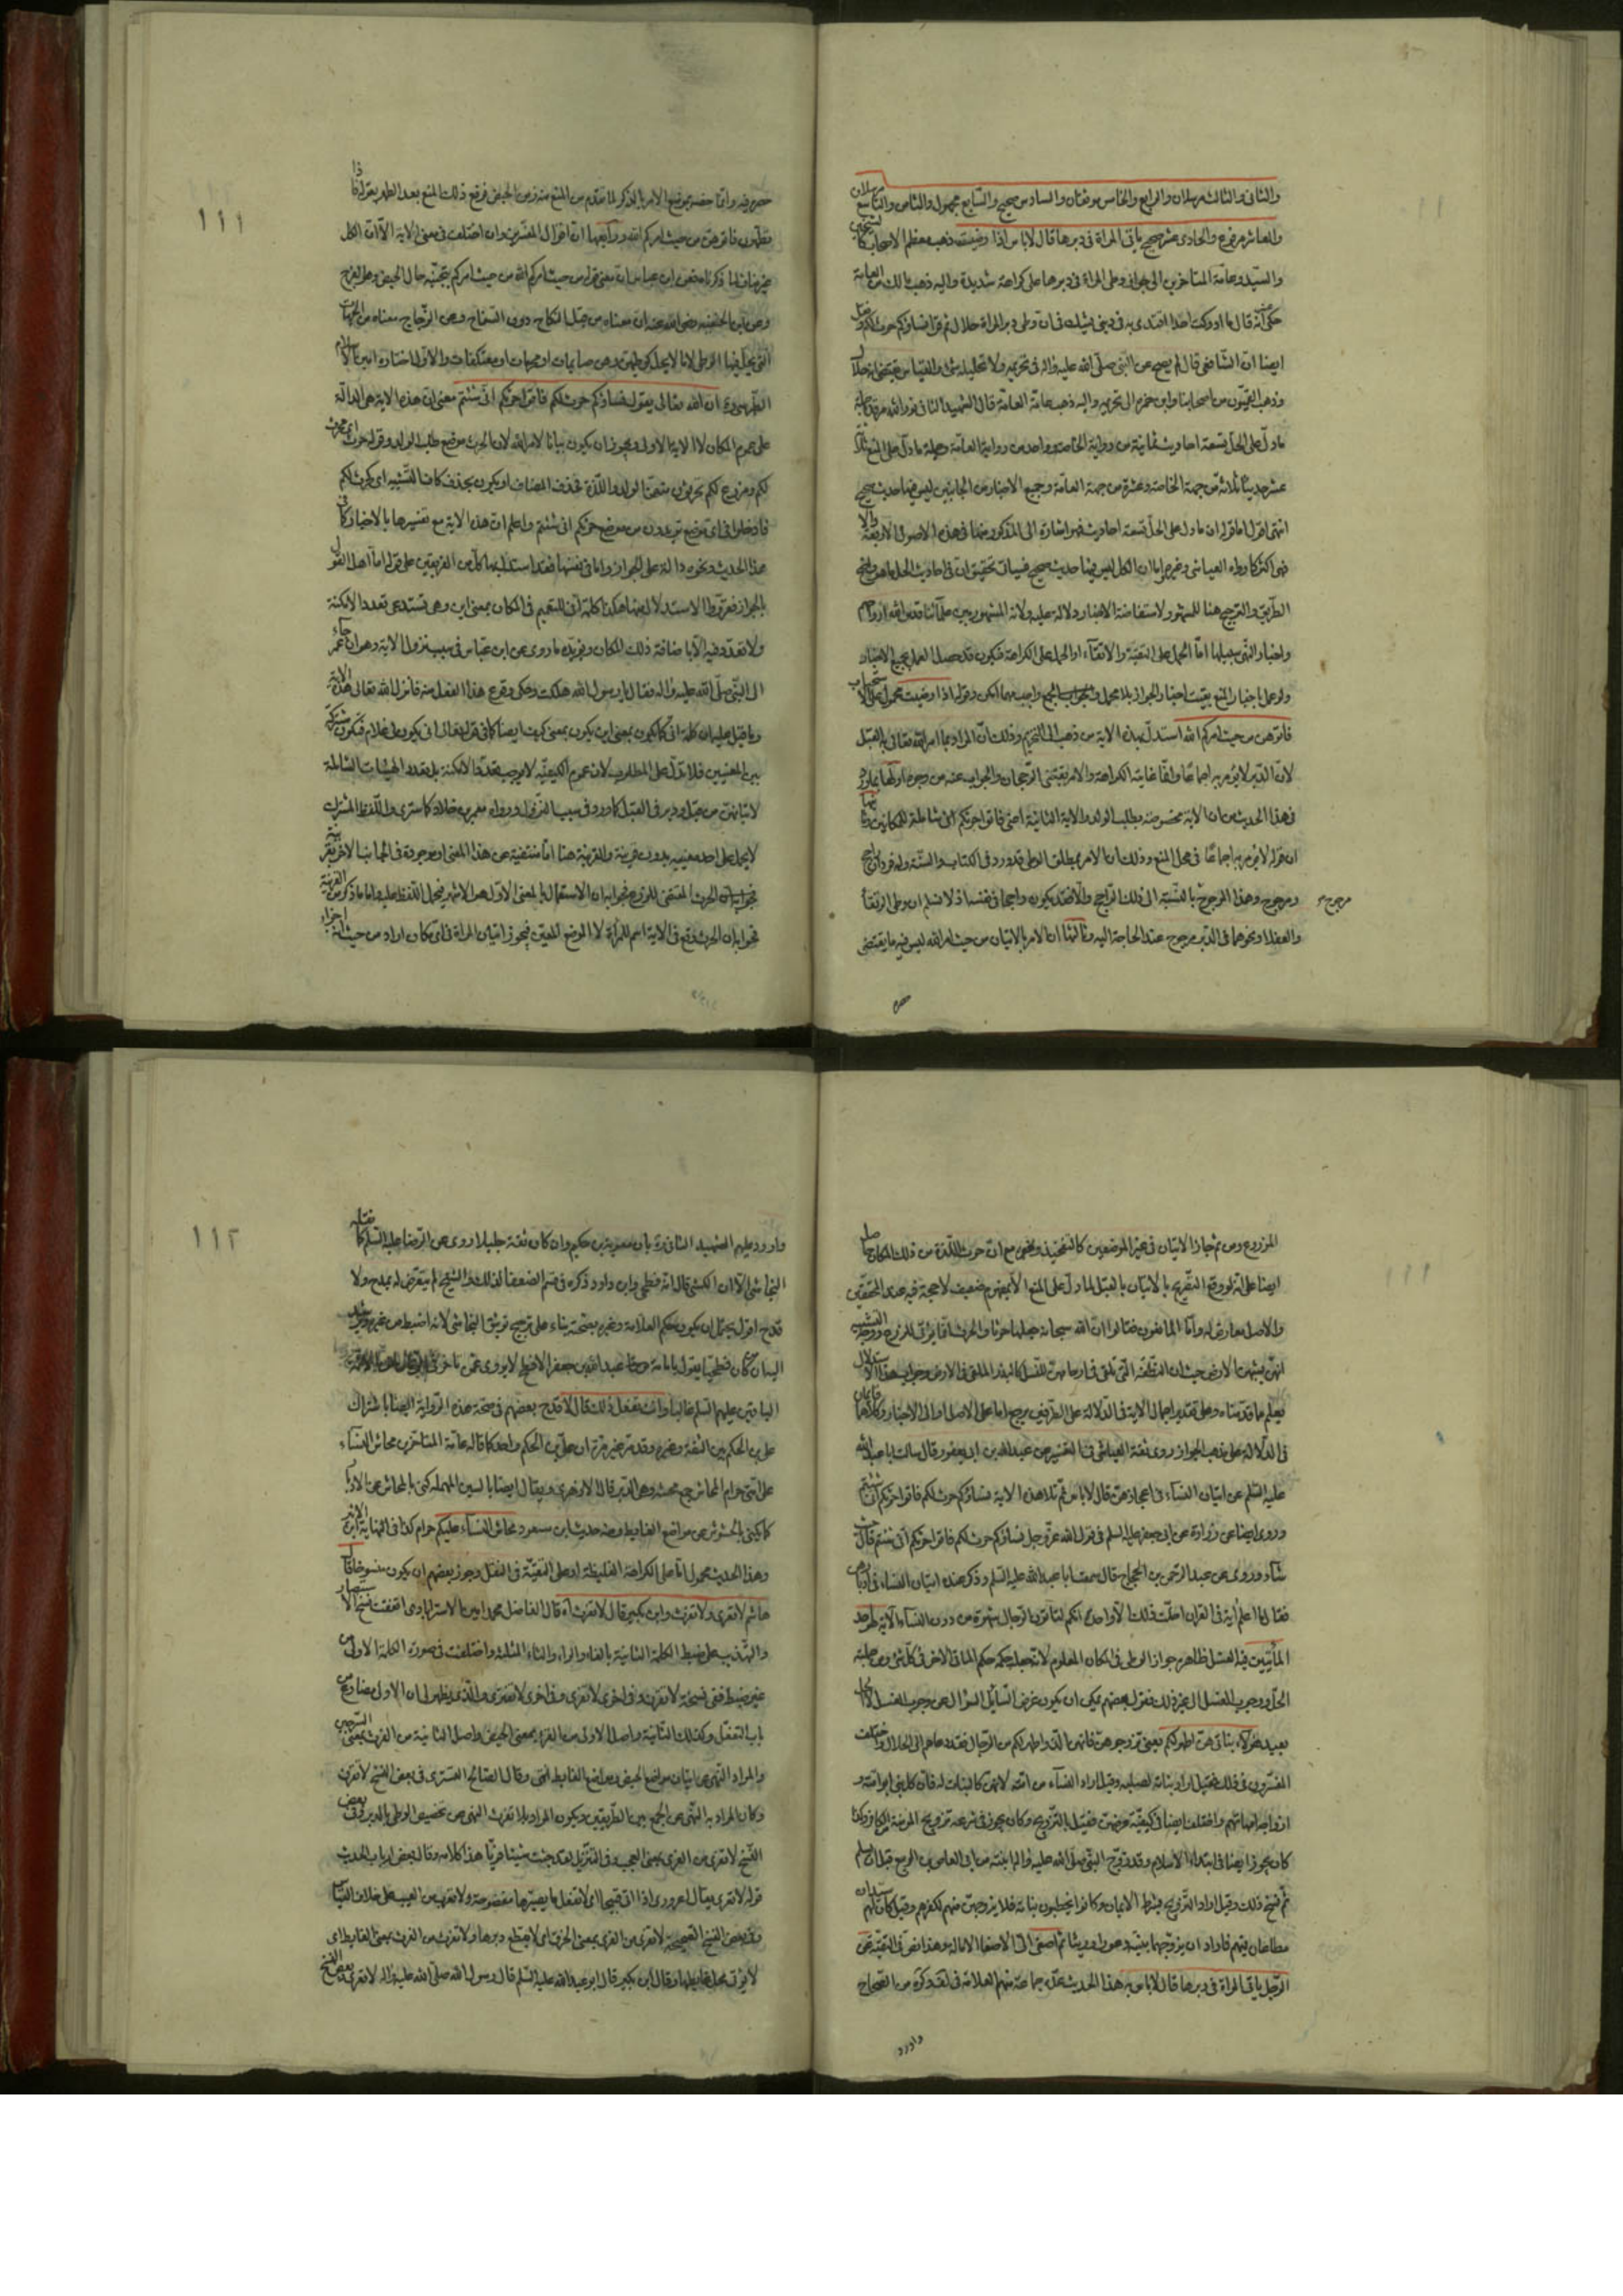 والثانى والثالث مرسلان والرابع والخامس موثقان والسادس صحيح والسابع مجهول والثامن والتاسع مرسلان
والعاشر مرفوع والحادى عشر صحيح ياتى المراة فى دبرها قال لاباس اذا رضيت ذهب معظم الاصحاب كالشيخين
والسيد وعامة المتاخرين الى جواز وطى المراة فى دبرها على كراهة شديدة واليه ذهب مالك من العامة
حكى عنه انه قال ما ادركت احدا اقتدى به فى دينى يشك فى ان وطى دبر المراة حلال ثم قرا نساؤكم حرث لكم
ايضا ان الشافعى قال لم يصح عن النبى صلى الله عليه واله فى تحريمه ولا تحليله شئ والقياس يقتضى انه حلال
وذهب القميون من اصحابنا وابن حمزة الى تحريمه واليه ذهب عامة العامة قال الشهيد الثانى
ما دل على الحل تسعة احاديث ثمانية من رواية الخاصة وواحد من رواية العامة وجملة ما دل على المنع ثلاثة
عشر حديثا ثلاثة من جهة الخاصة وعشرة من جهة العامة وجميع الاخبار من الجانبين ليس فيها حديث صحيح
انتهى اقول اما قوله ان ما دل على الحل تسعة احاديث فهو اشارة الى المذكور منها فى هذه الاصول الاربعة والا
فهى اكثر كما رواه العياشى وغيره واما ان الكل ليس فيها حديث صحيح فسياتى تحقيق ان فى احاديث الحل ما هو واضح
الطريق والترجيح هنا للمشهور لاستفاضة الاخبار ودلالة عليه ولانه المشهور بين علمائنا قدس الله ارواحهم
واخبار النهى سبيلها اما الحمل على التقية والاتقاء او الحمل على الكراهة فيكون قد حصل العمل بجميع الاخبار
ولو عمل باخبار المنع بقيت اخبار الجواز بلا محمل والجمع واجب مهما امكن وقوله اذا رضيت محمول على الاستحباب
فاتوهن من حيث امركم الله استدل بهذه الاية من ذهب الى التحريم وذلك ان المراد بما امر الله تعالى به القبل
لان الدبر لايؤمر به اجماعا وانما غايته الكراهة والامر يقتضى الرجحان والجواب عنه من وجوه اولها
فى هذا الحديث من ان الاية مخصوصة بطلب الولد والاية الثانية اعنى فاتوا حرثكم انى شاملة للمكانين وثانيها
ان قوله لايؤمر به اجماعا فى محل المنع وذلك ان الامر بمطلق الوطى قد ورد فى الكتاب والسنة وله فرد راجح
ومرجوح وهذا المرجوح بالنسبة الى ذلك الراجح والا فقد يكون راجحا فى نفسه اذ لا نسلم ان وطى الرتقاء
مرجوح
والعفلاء ونحوهما فى الدبر مرجوح عند الحاجة اليه وثالثها ان الامر بالاتيان من حيث امر الله ليس فيه ما يقتضى
١١١
حصره فيه وانما خصت موضع الامر بالذكر لما تقدم من المنع منه زمن الحيض فرفع ذلك المنع بعد الطهر بقوله فاذا
تطهرن فاتوهن من حيث امركم الله ورابعها ان اقوال المفسرين وان اختلفت فى معنى الاية الا ان الكل
غير مناف لما ذكرنا فعن ابن عباس ان معنى قوله من حيث امركم الله من حيث امركم بتجنبه حال الحيض وهو الفرج
وعن ابن الحنفيه رضى الله عنه ان معناه من قبل النكاح دون السفاح وعن الزجاج معناه من الجهات
التى يحل فيها الوطى لا ما لا يحل كوطيهن وهن صايمات او محرمات او معتكفات والاول اختاره امين الاسلام
الطبرسى ان الله تعالى يقول نساؤكم حرث لكم فاتوا حرثكم انى شئتم معنى ان هذه الاية هى الدالة
على عموم المكان لا الاية الاولى ويجوز ان يكون بيانا لامر الله لان الحرث موضع طلب الولد وقوله حرث اى محرث
لكم ومزرع لكم تحرثون منهن الولد واللذة فحذف المضاف او يكون بحذف كاف التشبيه اى كحرث لكم
فادخلوا فى اى موضع تريدون من موضع حرثكم انى شئتم واعلم ان هذه الاية مع تفسيرها بالاخبار كما فى
هذا الحديث ونحوه دالة على الجواز واما فى نفسها فقد استدل بها كل من الفريقين على قوله اما اهل القول
بالجواز فقرروا الاستدلال بها هكذا كلمة انى للتعميم فى المكان بمعنى اين وهى تستدعى تعدد الامكنة
ولا تعدد فيه الا باضافة ذلك المكان ويؤيده ما روى عن ابن عباس فى سبب نزول الاية وهو انه جاء عمر
الى النبى صلى الله عليه واله فقال يا رسول الله هلكت وحكى وقوع هذا الفعل منه فانزل الله تعالى هذه الاية
وما قيل عليه ان كلمة انى كما يكون بمعنى اين يكون بمعنى كيف ايضا كما فى قوله تعالى انى يكون لى غلام فتكون مشتركة
بين المعنيين فلا تدل على المطلوب لان عموم الكيفية لا يوجب تعدد الامكنة بل تعدد الهيئات الشاملة
لاتيانهن من قبل ودبر فى القبل كما ورد فى سبب النزول ورواه معمر بن خلاد كما سترى واللفظ المشترك
لايحمل على احد معنييه بدون قرينة والقرينة هنا اما منتفية عن هذا المعنى او موجودة فى الجانب الاخر بقرينة
الحرث المقتضى للزرع فجوابه ان الاستعمال بالمعنى الاول هو الاشهر فيحمل اللفظ عليه واما ما ذكر من القرينة
فجوابه ان الحرث وقع فى الاية اسم للمراة لا الموضع المعين فيجوز اتيان المراة فى اى مكان اراد من حيث انه اجزاء
المزروع ومن ثم جاز الاتيان فى غير الموضعين كالتفخيذ ونحوه مع ان حرث اللذة من ذلك المكان حاصل
ايضا على انه لو وقع التصريح بالاتيان بالقبل لما دل على المنع الا بمفهوم ضعيف لا حجة فيه عند المحققين
والاصل معارض له واما المانعون فقالوا ان الله سبحانه جعلها حرثا والحرث انما يؤتى للزرع ووجه التشبيه
انهن يشبهن الارض حيث ان النطفة التى تلقى فى ارحامهن للنسل كالبذر الملقى فى الارض وجواب هذا الاستدلال
يعلم مما قدمناه وعلى تقدير اجمال الاية فى الدلالة على الطرفين يرجع اما على الاصل او الى الاخبار وكلاهما
فى الدلالة على مذهب الجواز روى ثقة العياشى فى التفسير عن عبدالله بن ابى يعفور قال سالت ابا عبدالله
عليه السلم عن اتيان النساء فى اعجازهن قال لاباس ثم تلا هذه الاية نساؤكم حرث لكم فاتوا حرثكم انى شئتم
وروى ايضا عن زرارة عن ابى جعفر عليه السلم فى قول الله عز وجل نساؤكم حرث لكم فاتوا حرثكم انى شئتم قال حيث
شاء وروى عن عبد الرحمن بن الحجاج قال سمعت ابا عبدالله عليه السلم وذكر عنده اتيان النساء فى ادبارهن
فقال ما اعلم اية فى القران احلت ذلك الا واحدة انكم لتاتون الرجال شهوة من دون النساء الاية
المأتيين فيه الغسل ظاهره جواز الوطى فى المكان المعلوم لانه جعل حكمه حكم الماتى الاخر فى كل شئ ومن جملته
الحل ووجوب الغسل الى غير ذلك فقول بعضهم يمكن ان يكون غرض السائل السؤال عن وجوب الغسل لا الحل
بعيد هؤلاء بناتى هن اطهر لكم يعنى تزوجوهن فانهن الذ واطهر لكم من الرجال فقد دعاهم الى الحلال واختلف
المفسرون فى ذلك فقيل اراد بناته لصلبه وقيل اراد النساء من امته لانهن كالبنات له فان كل نبى ابو امته و
ازواجه امهاتهم واختلف ايضا فى كيفية عرضهن فقيل بالتزويج وكان يجوز فى شرعه تزويج المؤمنة من الكافر وكذا
كان يجوز ايضا فى ابتداء الاسلام وقد زوج النبى صلى الله عليه واله ابنته من ابى العاص بن الربيع قبل ان يسلم
ثم نسخ ذلك وقيل اراد التزويج بشرط الايمان وكانوا يخطبون بناته فلا يزوجهن منهم لكفرهم وقيل كان لهم سيدان
مطاعان فيهم فاراد ان يزوجهما بنتيه اصغى الى الاصغاء الامالة وهذا نص فى التقية عن
الرجل ياتى المراة فى دبرها قال لاباس به هذا الحديث عده جماعة منهم العلامة فى التذكرة من الصحاح
واورد
١١٢
واورد عليهم الشهيد الثانى بان معوية بن حكيم وان كان ثقة جليلا روى عن الرضا عليه السلم كما نقله
النجاشى الا ان الكشى قال انه فطحى وابن داود ذكره فى قسم الضعفا لذلك والشيخ لم يتعرض له بمدح ولا
قدح اقول يحتمل ان يكون حكم العلامة وغيره بصحته بناء على ترجيح توثيق النجاشى لانه اضبط من غيره
كان فطحيا يقول بامامة عبدالله بن جعفر الافطح لا يروى عمن تاخر
الباقين عليهم السلم غالبا وانت تفعل ذلك قال لا قدح بعضهم فى صحة هذه الرواية ايضا باشتراك
على بن الحكم بين الثقة وغيره وقد تقدم غير مرة ان على بن الحكم واحد كما قاله عامة المتاخرين محاش النساء
على امتى حرام المحاش جمع محشه وهى الدبر قال الازهرى ويقال ايضا بالسين المهملة كنى بالمحاش عن الادبار
كما يكنى بالحشوش عن مواضع الغايط ومنه حديث ابن مسعود محاش النساء عليكم حرام كذا فى النهاية لابن الاثير
وهذا الحديث محمول اما على الكراهة الغليظة او على التقية فى النقل وجوز بعضهم ان يكون منسوخا قال
هاشم لاتفرى ولا تفرث وابن بكير قال لا تفرث اه قال الفاضل محمد امين الاسترابادى اتفقت نسخ الاستبصار
والتهذيب على ضبط الكلمة الثانية بالفاء والراء والثاء المثلثة واختلفت فى صورة الكلمة الاولى من
غير ضبط ففى نسخة لا تفرث وفى اخرى لا تفرى وفى اخرى لا تعزى والذى يظهر لى ان الاول مضارع من
باب التفعل وكذلك الثانية واصل الاولى من القرء بمعنى الحيض واصل الثانية من الفرث بمعنى السرجين
والمراد النهى عن اتيان مواضع الحيض ومواضع الغايط انتهى وقال الصالح التسترى فى بعض النسخ لا تفرث
وكان المراد به النهى عن الجمع بين الطريقين ويكون المراد بلا تفرث النهى عن تخصيص الوطى بالدبر وفى بعض
النسخ لا تفرى من الفرى بمعنى العجب وفى التنزيل لقد جئت شيئا فريا هذا كلامه وقال بعض ارباب الحديث
قوله لا تعرى يقال اعرورى اذا اتى قبيحا اى لا تفعل ما يصيرها مفضوحة ولا تفرث من العيب على خلاف القياس
وفى بعض النسخ الصحيحة لا تفرى من الفرى بمعنى الخرق اى لا يقطع دبرها ولا تفرث من الفرث بمعنى الغايط اى
لا يؤتى محل غايطها وقال ابن بكير قال ابو عبدالله عليه السلم قال رسول الله صلى الله عليه واله لا تفرى بعض النسخ